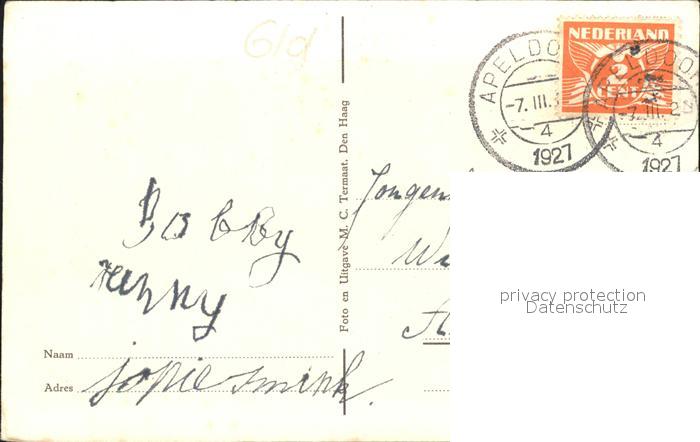 61d
NEDERLAND
2
CENT
APELDOO
-7. III.
4
1927
APELDOO
-7. III. 2
4
1927
Foto en Uitgave M. C. Termaat, Den Haag
Jongen
W
Bobby
Henny
privacy protection
Datenschutz
A
Naam
Adres
Jopie Smink.